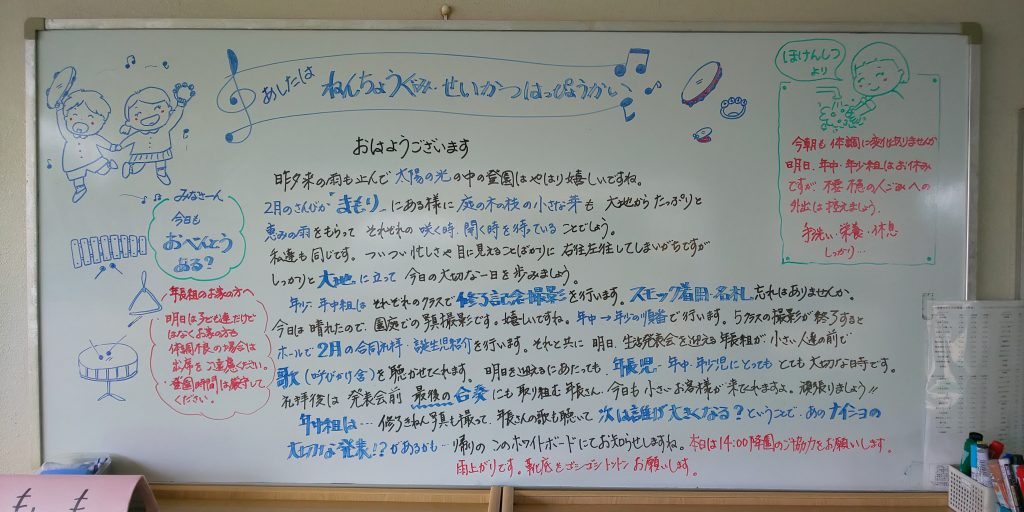 あしたは ねんちょうぐみ・せいかつはっぴょうかい
おはようございます
昨夕来の雨も止んで 太陽の光の中の登園はやはり嬉しいですね。
2月のさんびか"まもり"にある様に 庭の木の枝の小さな芽も 大地からたっぷりと
恵みの雨をもらって それぞれの 咲く時、開く時を待っている ことでしょう。
私達も同じです。ついつい忙しさや目に見えることばかりに 右往左往してしまいがちですが
しっかりと 大地に立って 今日の大切な一日を歩みましょう。
年少・年中組は それぞれのクラスで 修了記念撮影を行います。スモック着用・名札 忘れはありませんか。
今日は晴れたので、園庭での 撮影です。嬉しいですね。年中→年少の順番で行います。5クラスの撮影が終了すると
ホールで 2月の合同礼拝・誕生児紹介を行います。それと共に 明日、生活発表会を迎える年長組が、小さい人達の前で
歌(呼びかけ含)を聴かせてくれます。明日を迎えるにあたっても、年長児・年中・年少児にとっても とても大切な日です。
礼拝後は 発表会前 最後の合奏にも取り組む年長さん。今日も小さいお客様が来てくれますよ。頑張りましょう!!
年中組は… 修了きねん写真も撮って、年長さんの歌も聴いて 次は誰が大きくなる?ということで…あのナイショの
大切な発表!?があるかも… 帰りのこのホワイトボードにてお知らせしますね。本日は14:00降園のご協力をお願いします。
雨上がりです。靴底をゴシゴシトントンお願いします。
みなさーん
今日も
おべんとう
ある?
年長組のお家の方へ
明日は子ども達だけで
はなくお家の方も
体調不良の場合は
出席をご遠慮ください。
・登園時間は厳守して
ください。
ほけんしつ
より
今朝も体調に変化はありませんか
明日、年中・年少組はお休み
ですが 人ごみへの
外出は控えましょう。
手洗い・栄養・休息
しっかり…